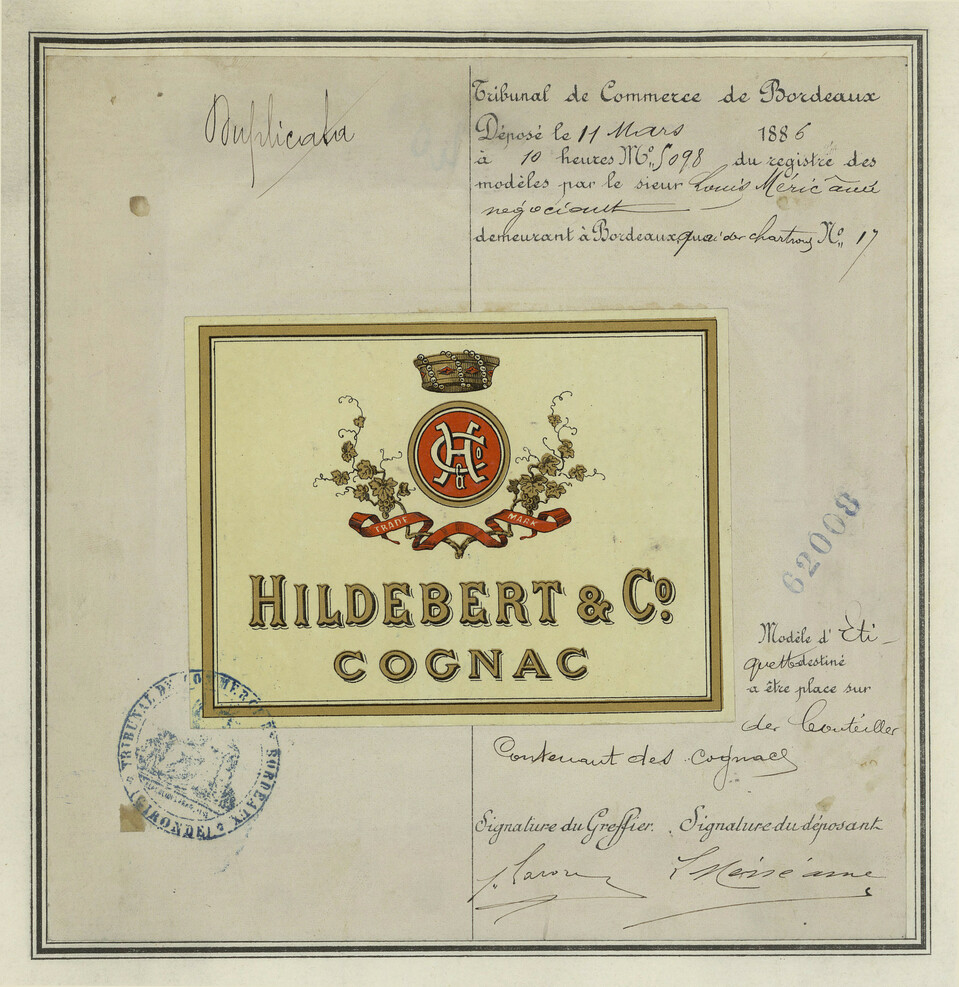 Duplicata
Tribunal de Commerce de Bordeaux
Déposé le 11 Mars 1886
à 10 heures M. No. 5098 du registre des
modèles par le sieur Louis Méric ainé
negociant
demeurant à Bordeaux quai des chartrons No. 17
H & Co
TRADE MARK
HILDEBERT & Co.
COGNAC
62008
Modèle d' Eti-
quette destiné
a être place sur
des bouteilles
Contenant des cognacs
TRIBUNAL DE COMMERCE DE BORDEAUX
(GIRONDE)
Signature du Greffier. Signature du déposant
L Méric ainé